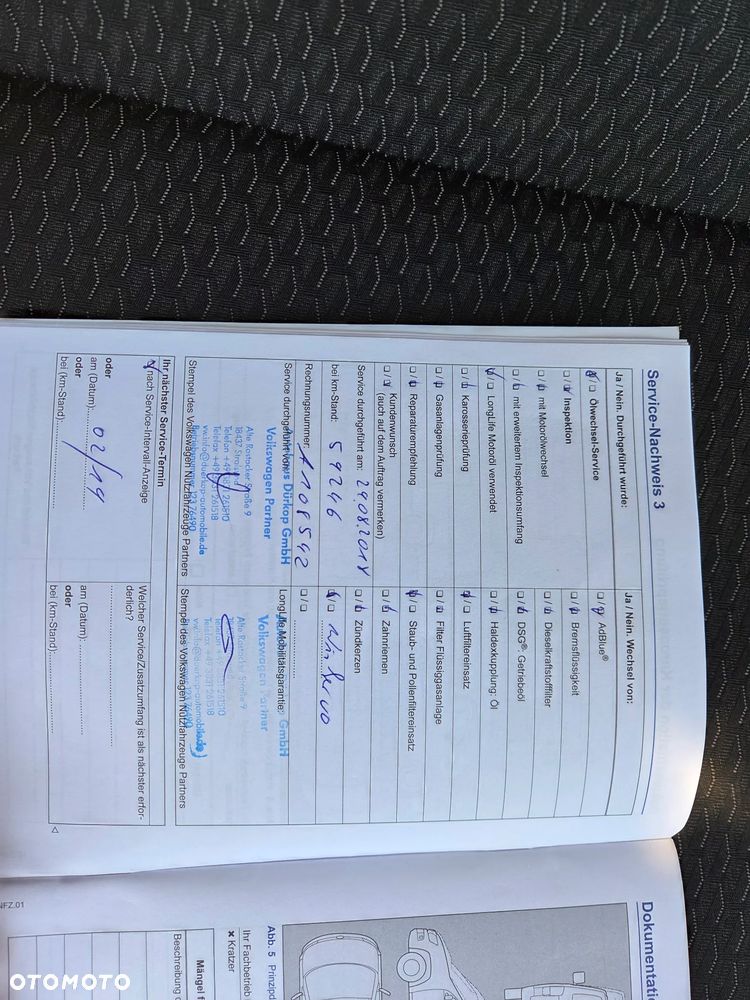 Service-Nachweis 3
Ja / Nein. Durchgeführt wurde:
Ja / Nein. Wechsel von:
Ölwechsel-Service
AdBlue®
Inspektion
Bremsflüssigkeit
mit Motorölwechsel
Dieselkraftstofffilter
mit erweitertem Inspektionsumfang
DSG®: Getriebeöl
LongLife Motoröl verwendet
Haldexkupplung: Öl
Karosserieprüfung
Luftfiltereinsatz
Gasanlagenprüfung
Filter Flüssiggasanlage
Reparaturempfehlung
Staub- und Pollenfiltereinsatz
Kundenwunsch
(auch auf dem Auftrag vermerken)
Zahnriemen
Service durchgeführt am: 29.08.2018
Zündkerzen
bei km-Stand: 59246
Rechnungsnummer: 1108542
Service durchgeführt von:
Dürkop GmbH
Volkswagen Partner
Alte Rostocker Straße 9
18437
Stempel des Volkswagen Nutzfahrzeuge Partners
LongLife Mobilitätsgarantie:
GmbH
Volkswagen Partner
Alte Rostocker Straße 9
Stempel des Volkswagen Nutzfahrzeuge Partners
Ihr nächster Service-Termin
nach Service-Intervall-Anzeige
oder
am (Datum): 02/19
oder
bei (km-Stand):
Welcher Service/Zusatzumfang ist als nächster erfor-
derlich?
am (Datum):
oder
bei (km-Stand):
Dokumentati
Abb. 5 Prinzipd
Ihr Fachbetrieb
× Kratzer
Mängel f
Beschreibung d
NFZ.01
OTOMOTO